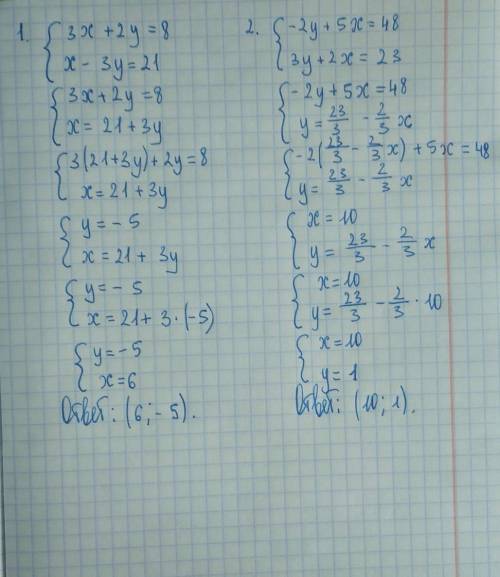 1. { 3x + 2y = 8
x - 3y = 21
{ 3x + 2y = 8
x = 21 + 3y
{ 3(21+3y) + 2y = 8
x = 21 + 3y
{ y = - 5
x = 21 + 3y
{ y = - 5
x = 21 + 3 · (-5)
{ y = -5
x = 6
Ответ: (6; -5).
2. { -2y + 5x = 48
3y + 2x = 23
{ -2y + 5x = 48
y = 23/3 - 2/3 x
{ -2(23/3 - 2/3 x) + 5x = 48
y = 23/3 - 2/3 x
{ x = 10
y = 23/3 - 2/3 x
{ x = 10
y = 23/3 - 2/3 · 10
{ x = 10
y = 1
Ответ: (10; 1).